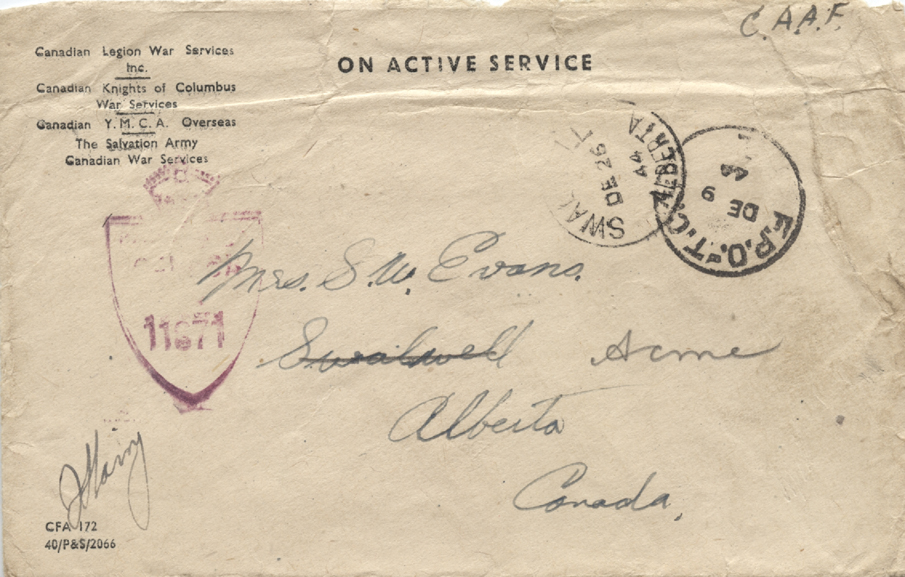 C.A.A.F.
Canadian Legion War Services
Inc.
Canadian Knights of Columbus
War Services
Canadian Y.M.C.A. Overseas
The Salvation Army
Canadian War Services
ON ACTIVE SERVICE
SWAL
DE 26
44
ALBERTA
F.P.O.-T.C.
9
DE
44
11671
Mrs. S.W. Evans.
Swalwell Acme
Alberta
Canada.
CFA 172
40/P&S/2066